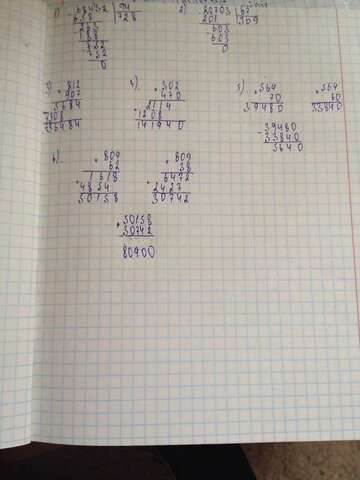 1) 68432 | 94
658 728
263
188
752
752
0
2) 20703 | 67
201 309
603
603
0
3) 812
907
5684
7308
736484
4) 302
470
2114
1208
141940
5) 564
70
39480
564
60
33840
39480
33840
5640
6) 809
62
1618
4854
50158
809
38
6472
2427
30742
50158
30742
80900